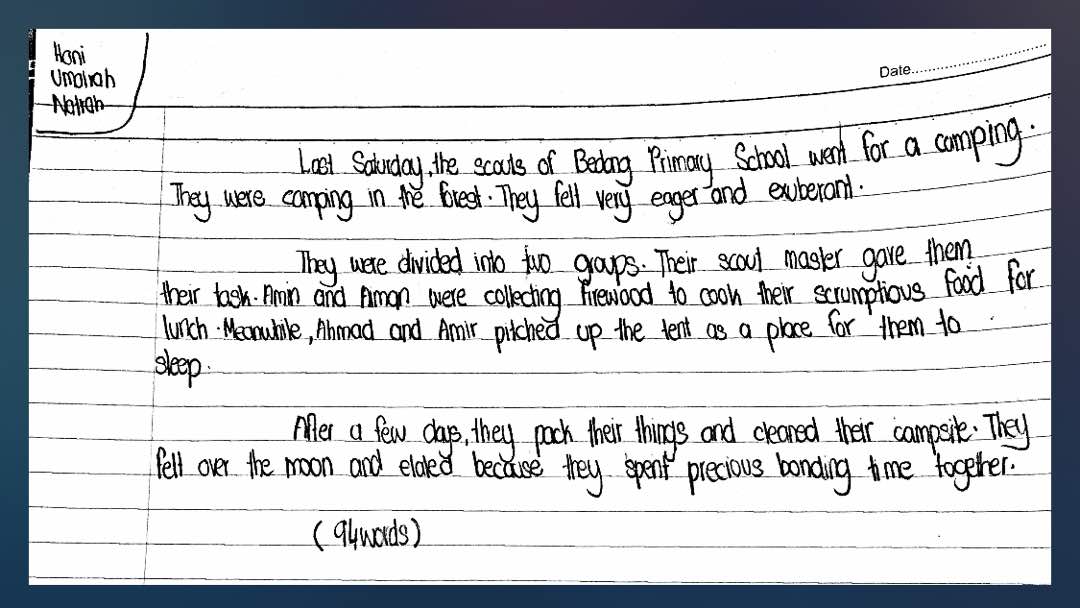 Hani
Umairah
Natrah
Date
Last Saturday, the scouts of Bedong Primary School went for a camping.
They were camping in the forest. They felt very eager and exuberant.
They were divided into two groups. Their scout master gave them
their task. Amin and Aman were collecting firewood to cook their scrumptious food for
lunch. Meanwhile, Ahmad and Amir pitched up the tent as a place for them to
sleep.
After a few days, they pack their things and cleaned their campsite. They
felt over the moon and elated because they spent precious bonding time together.
(94 words)